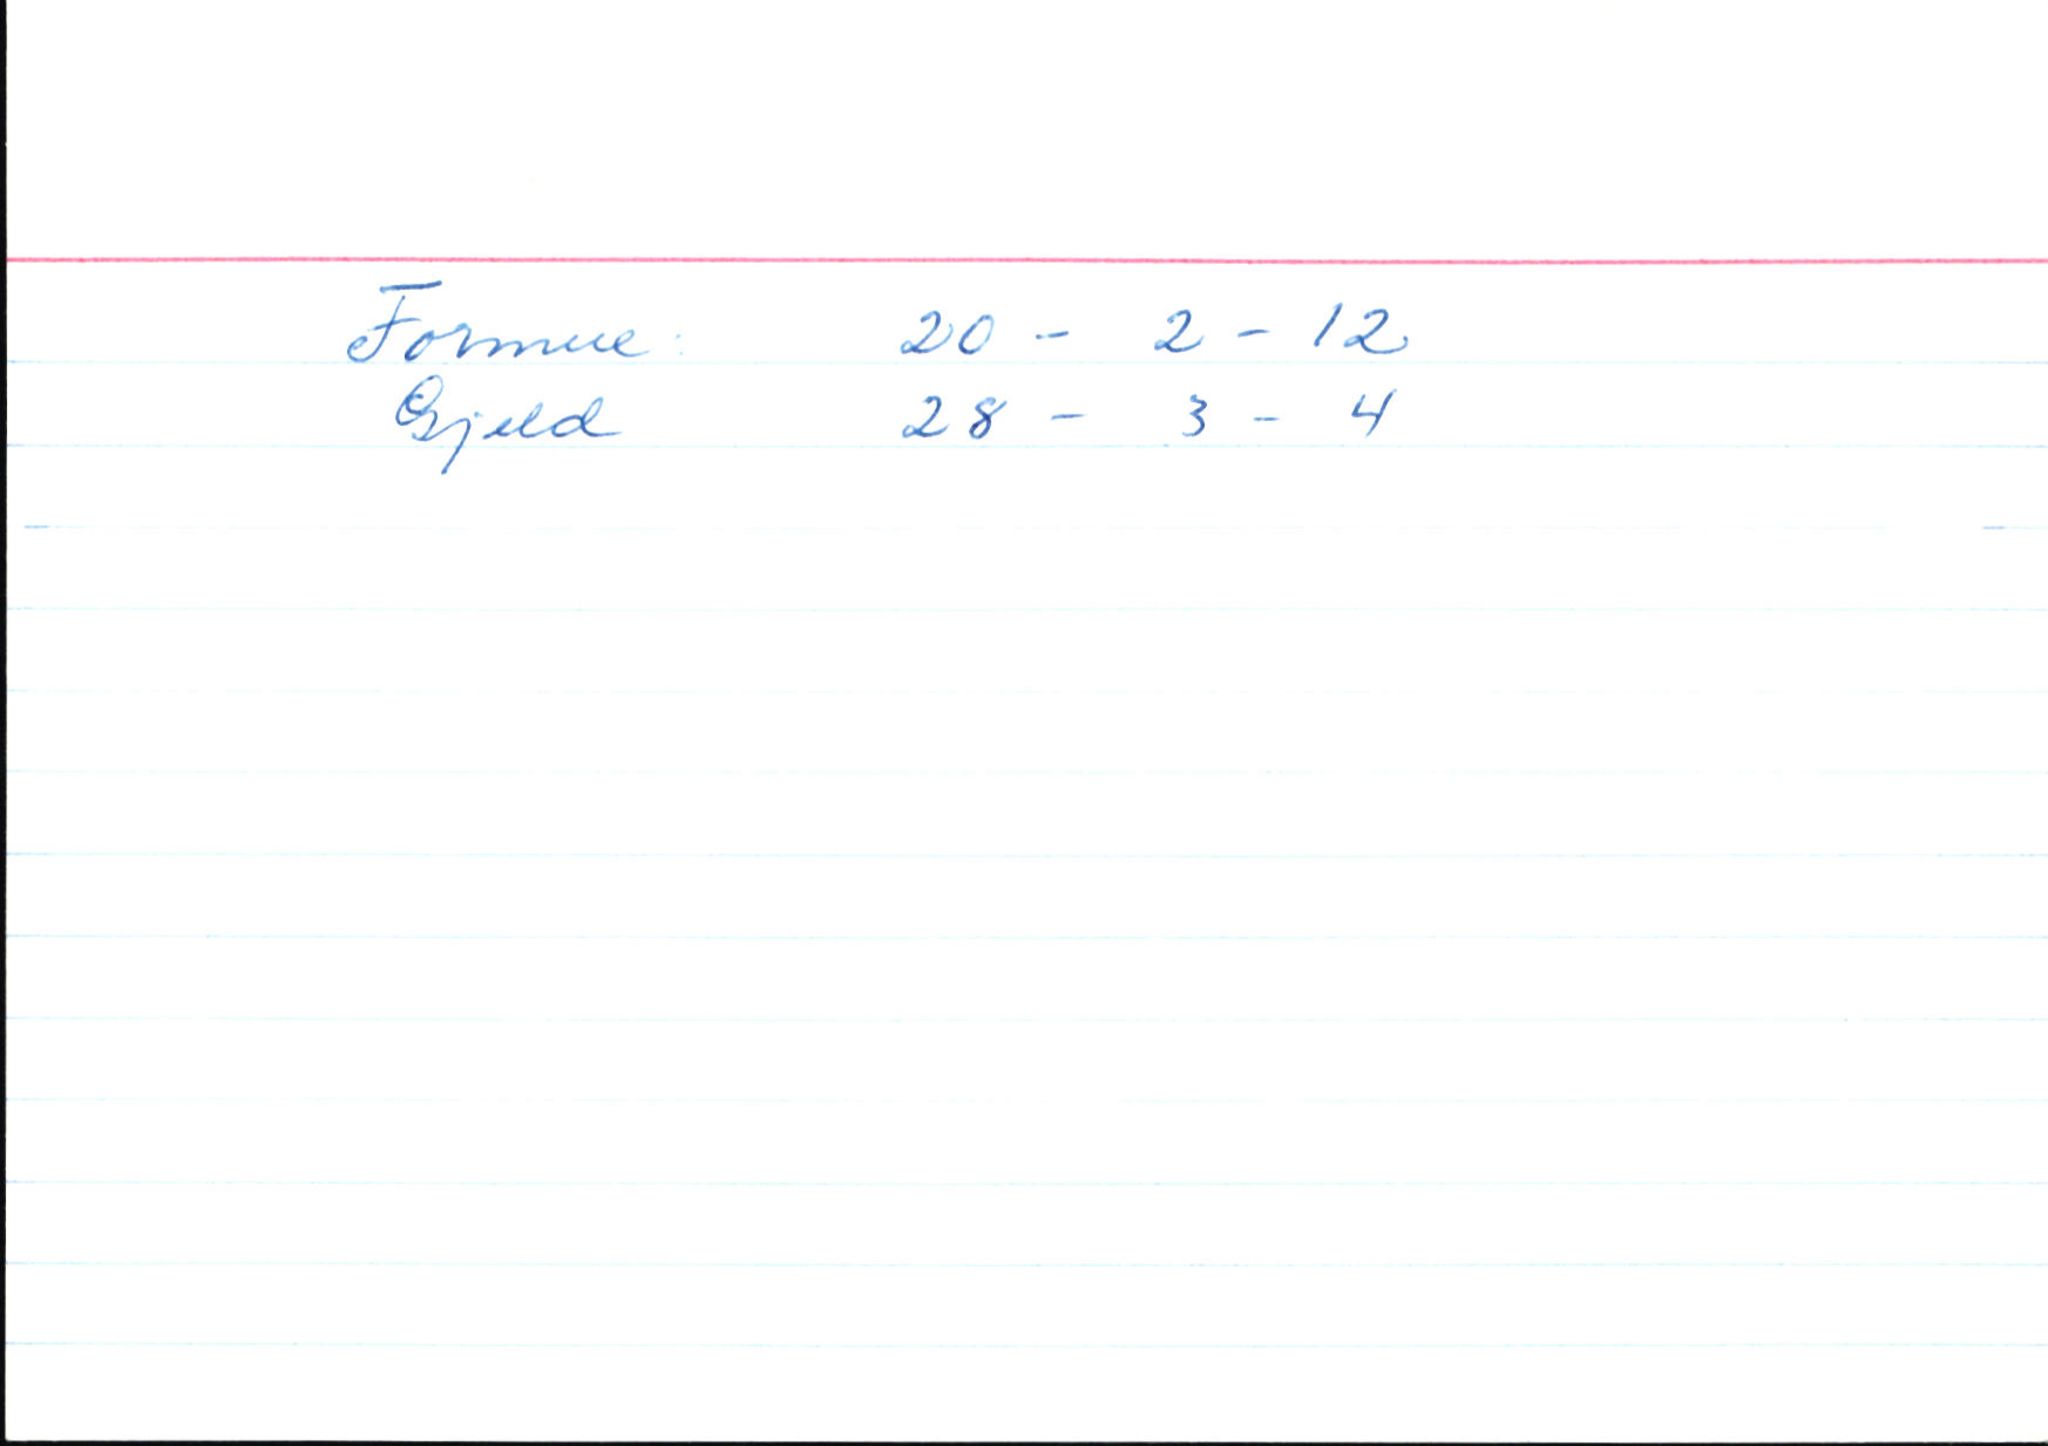 Formue: 20 - 2 - 12
Gjeld 28 - 3 - 4